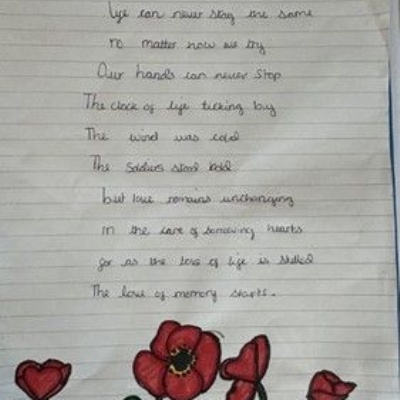 Life can never stay the same
no matter how we try
Our hands can never stop
The clock of life ticking by
The wind was cold
The Soldiers stood bold
but love remains unchanging
in the care of sorrowing hearts
for as the love of life is stilled
The love of memory starts.